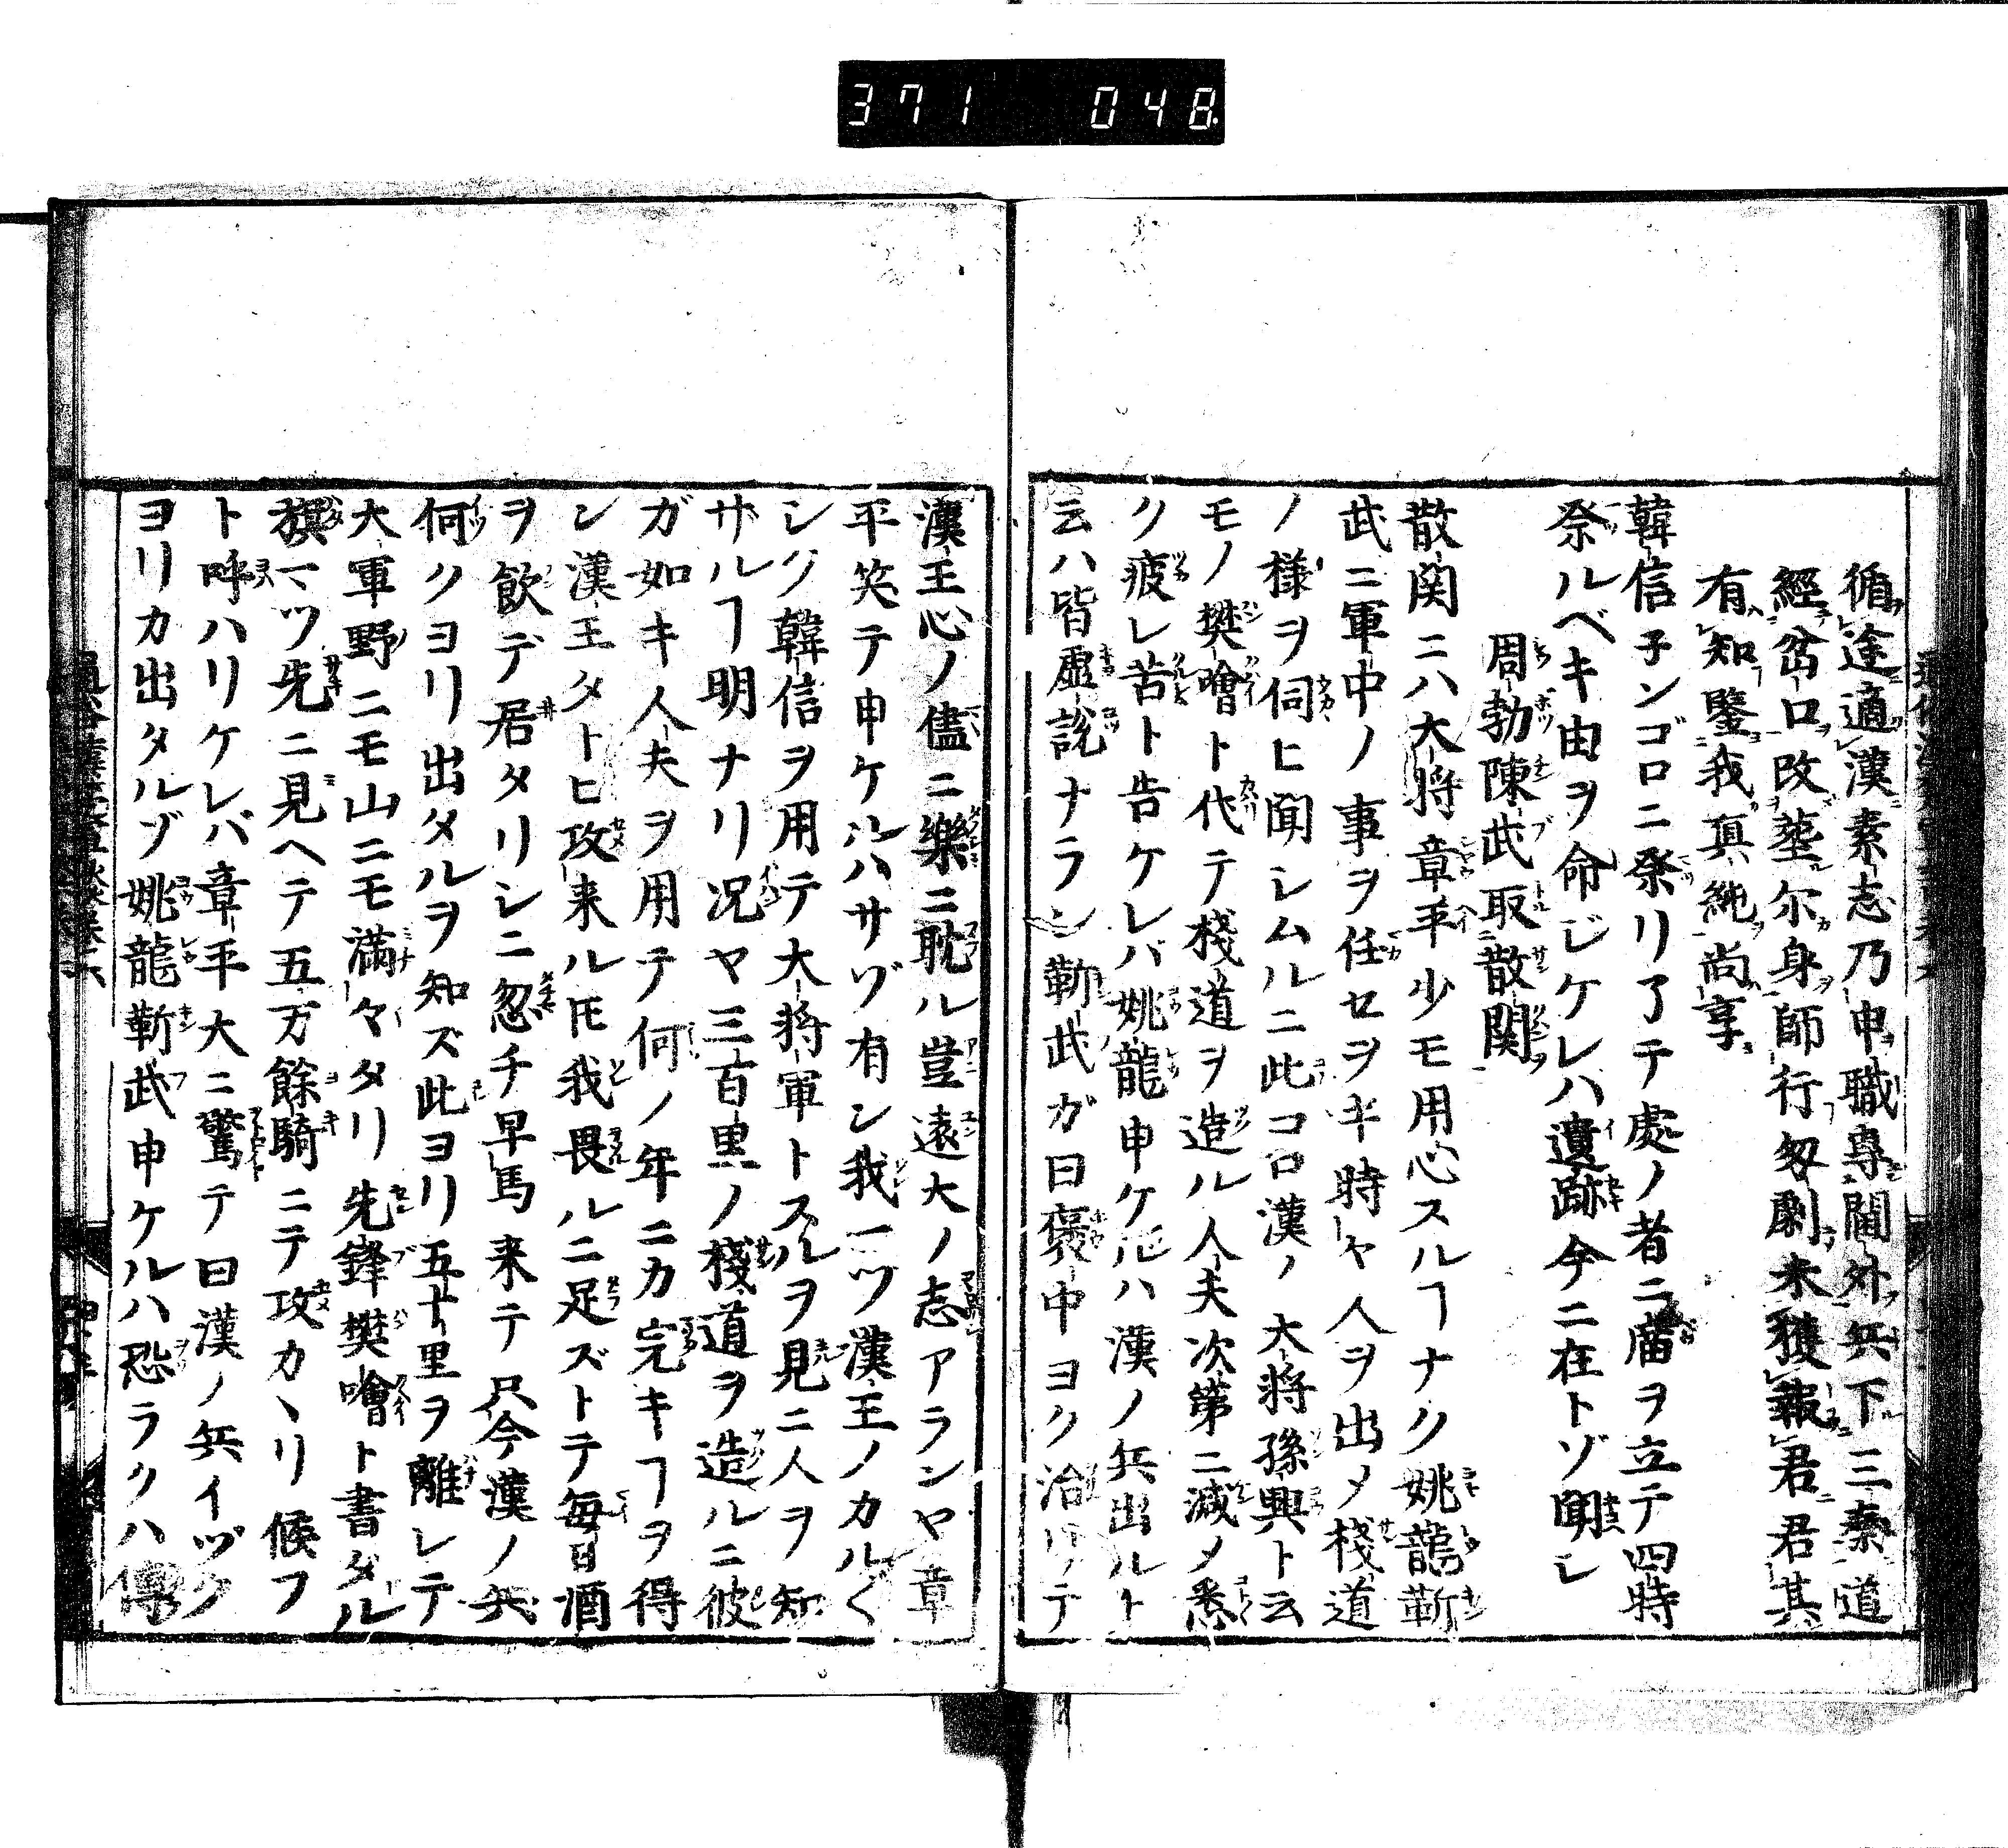 371 048
循途適漢素志乃申職專閫外兵下三秦道
經岔口改塟尔身師行匆劇未獲報君君其
有知鑒我真純尚享
韓信子ンゴロニ祭リ了テ處ノ者ニ庿ヲ立テ四時
祭ルベキ由ヲ命ジケレハ遺跡今ニ在トゾ聞ヘシ
周勃陳武取散関
散関ニハ大将章平少モ用心スルヿナク姚龍靳
武ニ軍中ノ事ヲ任セヲキ時々人ヲ出メ棧道
ノ様ヲ伺ヒ聞シムルニ此コロ漢ノ大将孫興ト云
モノ樊噲ト代テ棧道ヲ造ル人夫次第ニ減メ悉
ク疲レ苦ト告ケレバ姚龍申ケルハ漢ノ兵出ルト
云ハ皆虚説ナラン靳武ガ曰褒中ヨク治リテ
漢王心ノ儘ニ樂ニ耽ル豈遠大ノ志アランヤ章
平笑テ申ケルハサゾ有ン我一ツ漢王ノカル〱
シク韓信ヲ用テ大将軍トスルヲ見ニ人ヲ知
サルヿ明ナリ况ヤ三百里ノ棧道ヲ造ルニ彼
ガ如キ人夫ヲ用テ何ノ年ニカ完キヿヲ得
ン漢王タトヒ攻来ル𪜈我畏ルニ足ズトテ毎日酒
ヲ飲デ居タリシニ忽チ早馬来テ只今漢ノ兵
何クヨリ出タルヲ知ズ此ヨリ五十里ヲ離レテ
大軍野ニモ山ニモ満々タリ先鋒樊噲ト書タル
旗一ツ先ニ見ヘテ五万餘騎ニテ攻カヽリ候フ
ト呼ハリケレバ章平大ニ驚テ曰漢ノ兵イヅク
ヨリカ出タルゾ姚龍靳武申ケルハ恐ラクハ傳